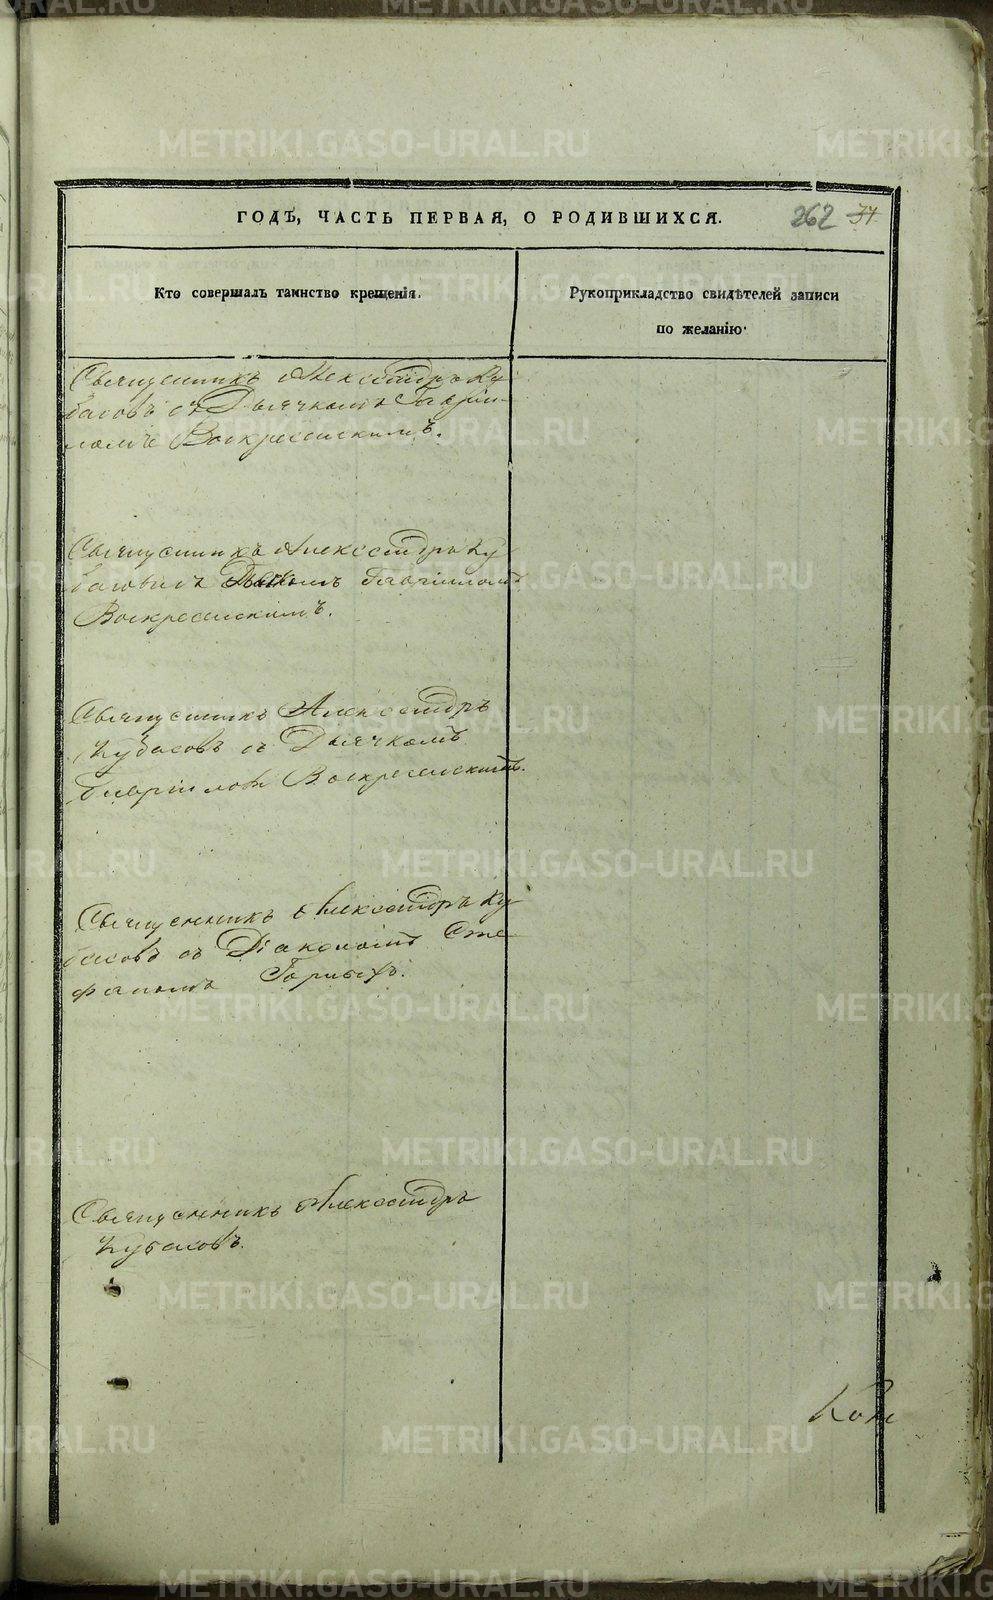 ГОДЪ, ЧАСТЬ ПЕРВАЯ, О РОДИВШИХСЯ.
262 77
Кто совершалъ таинство крещенія.
Рукоприкладство свидѣтелей записи
по желанію.
Священникъ Александръ Ку
басовъ съ Дьячкомъ Гаврі
ломъ Воскресенскимъ.
Священникъ Александръ Ку
басовъ съ Гавріиломъ
Воскресенскимъ.
Священникъ Александръ
Кубасовъ съ Дьячкомъ
Гавріиломъ Воскресенскимъ.
Священникъ Александръ Ку
басовъ съ Діакономъ Сте
фаномъ Горныхъ.
Священникъ Александръ
Кубасовъ.
METRIKI.GASO-URAL.RU